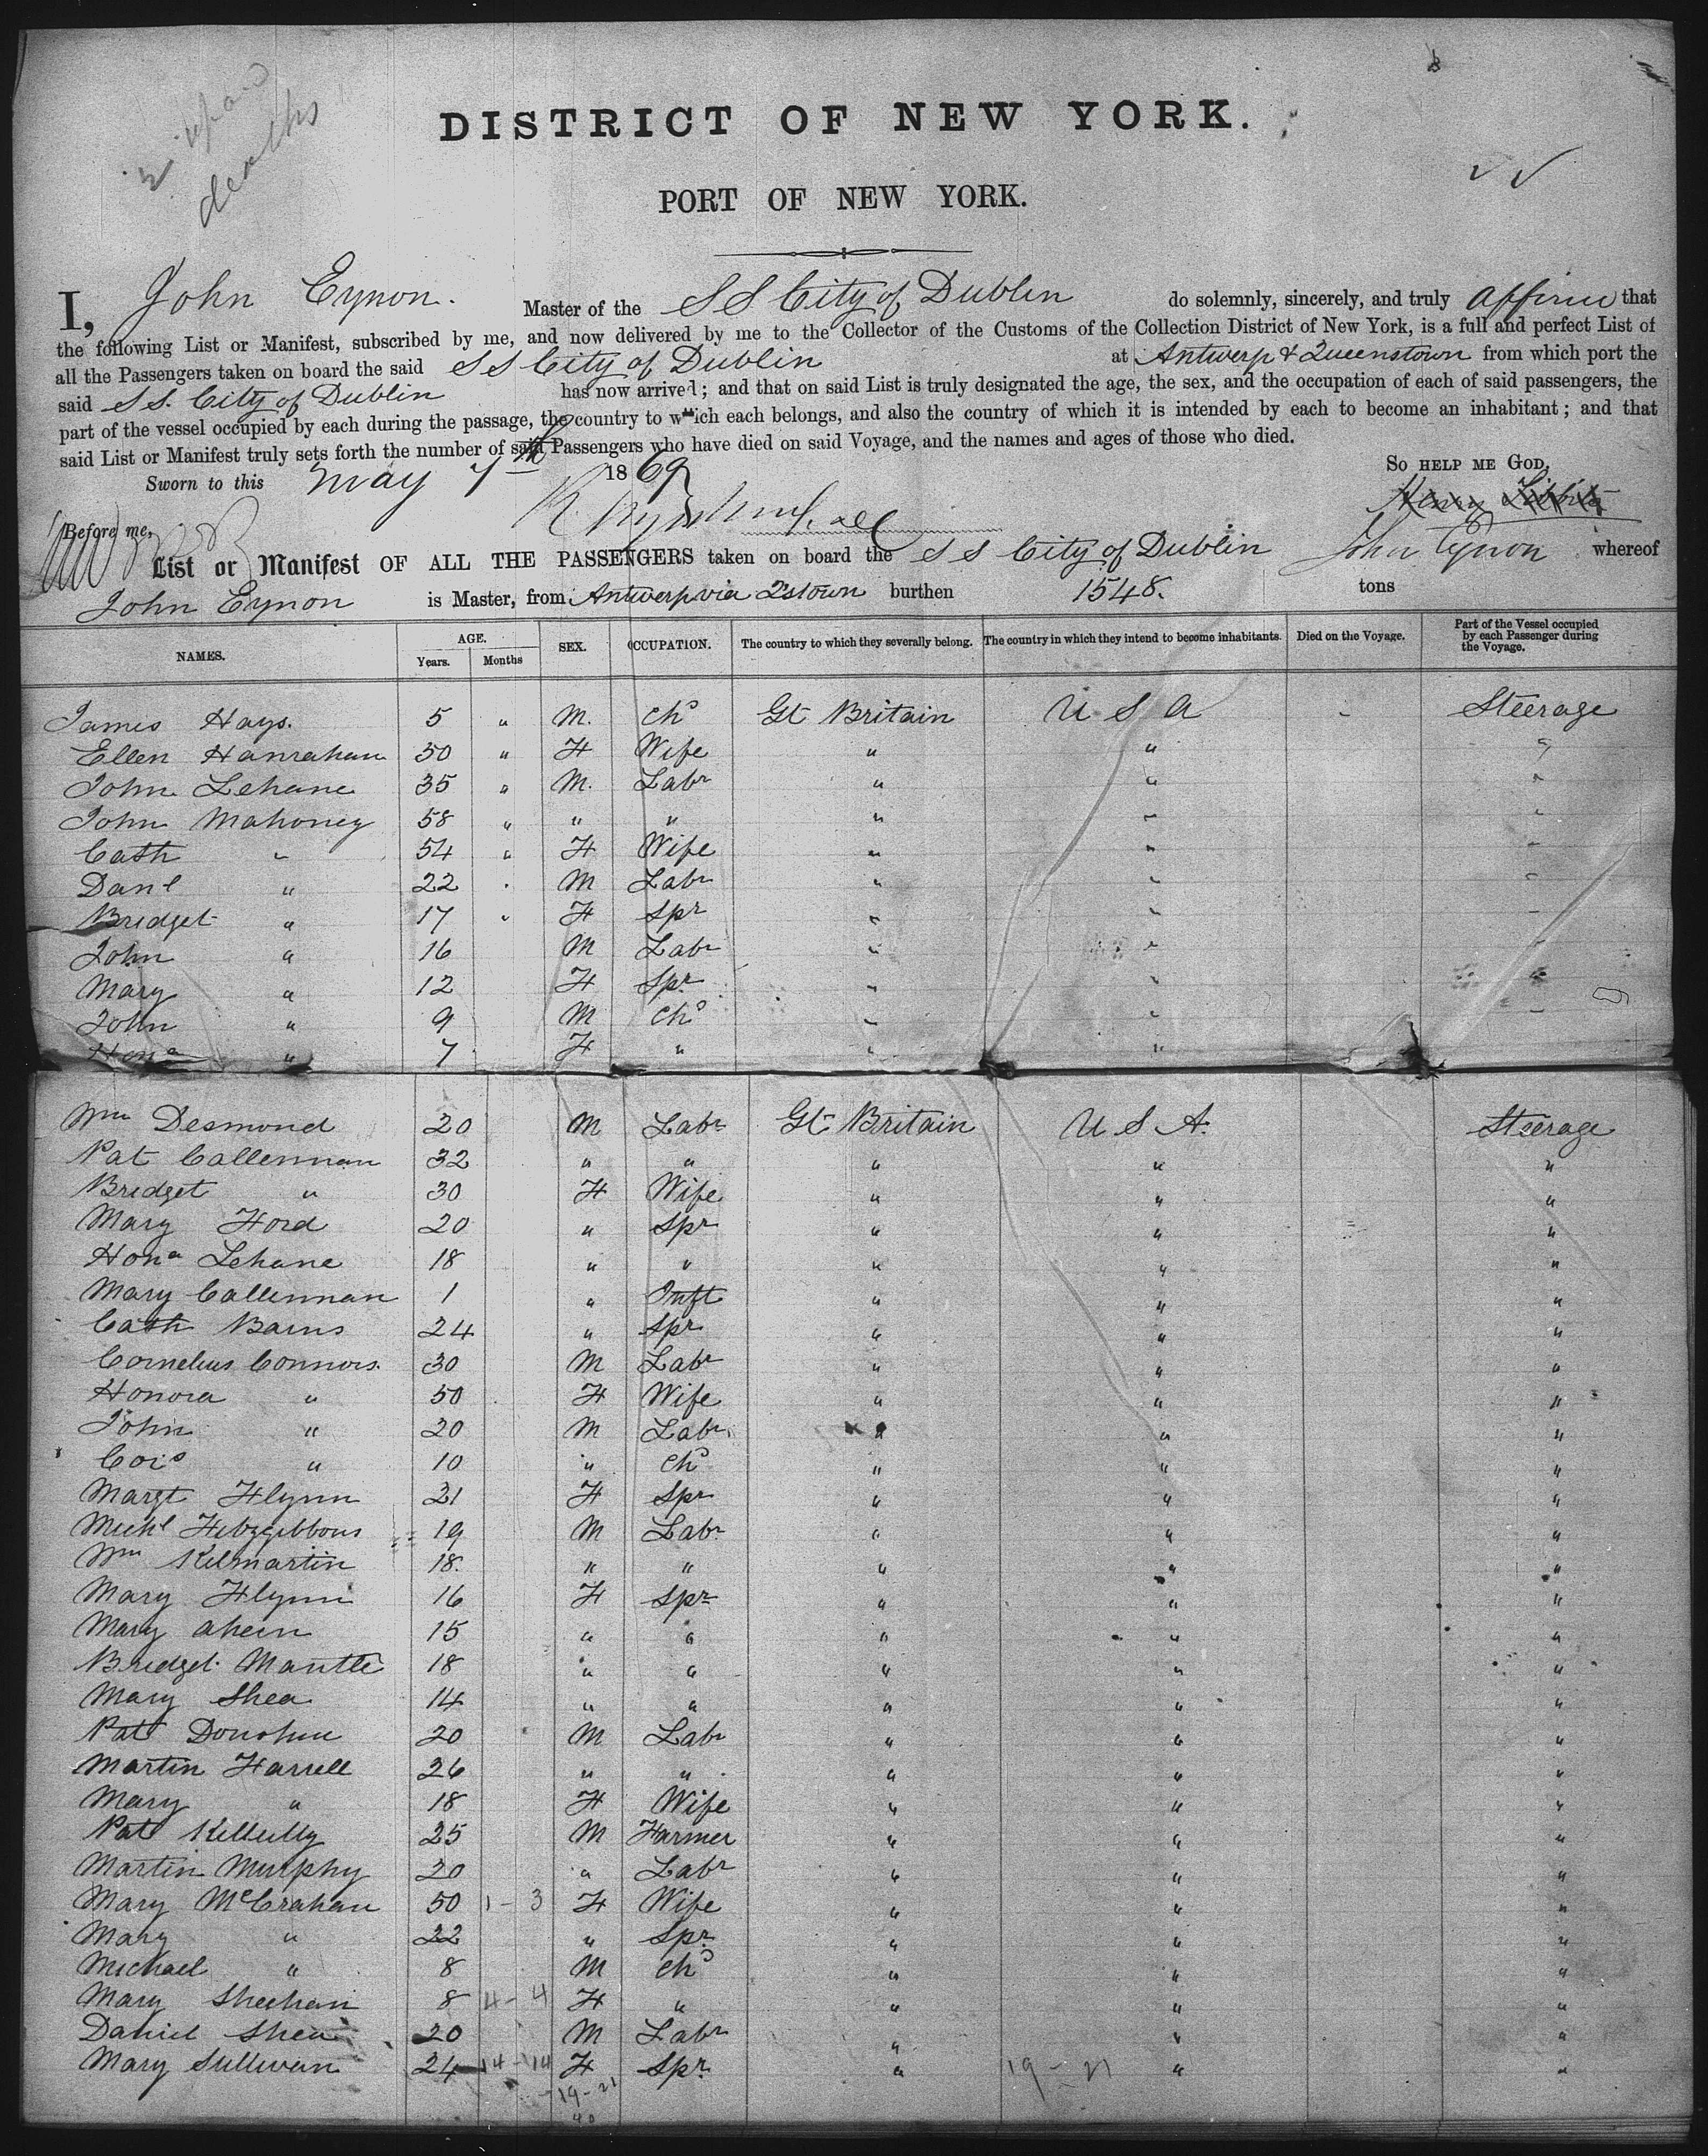 deaths
DISTRICT OF NEW YORK.
PORT OF NEW YORK.
I, John Eynon. Master of the S S City of Dublin do solemnly, sincerely, and truly affirm that
the following List or Manifest, subscribed by me, and now delivered by me to the Collector of the Customs of the Collection District of New York, is a full and perfect List of
all the Passengers taken on board the said S S City of Dublin at Antwerp & Queenstown from which port the
said S S. City of Dublin has now arrived; and that on said List is truly designated the age, the sex, and the occupation of each of said passengers, the
part of the vessel occupied by each during the passage, the country to which each belongs, and also the country of which it is intended by each to become an inhabitant; and that
said List or Manifest truly sets forth the number of said Passengers who have died on said Voyage, and the names and ages of those who died.
Sworn to this May 7th 1869 So HELP ME GOD,
Before me,
List or Manifest OF ALL THE PASSENGERS taken on board the S S City of Dublin John Eynon whereof
John Eynon is Master, from Antwerp via Q'stown burthen 1548. tons
NAMES. AGE. Years. Months SEX. OCCUPATION. The country to which they severally belong. The country in which they intend to become inhabitants. Died on the Voyage. Part of the Vessel occupied by each Passenger during the Voyage.
James Hays. 5 " M. Chd Gt Britain U S A - Steerage
Ellen Hanrahan 30 " F Wife " " "
John Lehane 35 " M. Labr " " "
John Mahoney 58 " " " " " "
Cath " 54 " F Wife " " "
Danl " 22 " M Labr " " "
Bridget " 17 " F Spr " " "
John " 16 M Labr " " "
Mary " 12 F Spr " " "
John " 9 M Chd " " "
Hona " 7 F " " "
Wm Desmond 20 M Labr Gt Britain U S A. Steerage
Pat Callennan 32 " " " " "
Bridget " 30 F Wife " " "
Mary Ford 20 " Spr " " "
Hona Lehane 18 " " " " "
Mary Callennan 1 " Inft " " "
Cath Barns 24 " Spr " " "
Cornelius Connors. 30 M Labr " " "
Honora " 50 F Wife " " "
John " 20 M Labr. " " "
Cors " 10 " Chd " " "
Margt Flynn 21 F Spr " " "
Michl Fitzgibbons 19 M Labr " " "
Wm Kilmartin 18. " " " " "
Mary Flynn 16 F Spr " " "
Mary Ahern 15 " " " " "
Bridget Mantle 18 " " " " "
Mary Shea 14 " " " " "
Pat Donohue 20 M Labr " " "
Martin Farrell 26 " " " " "
Mary " 18 F Wife " " "
Pat 25 M Farmer " " "
Martin Murphy 20 " Labr " " "
Mary McCrahan 50 1 - 3 F Wife " " "
Mary " 22 " Spr " " "
Michael " 8 M Chd " " "
Mary Sheehan 8 4 - 4 F " " " "
Daniel Shea 20 M Labr " " "
Mary Sullivan 24 14 - 14 F Spr " 19 - 21 " "
19 - 21
40